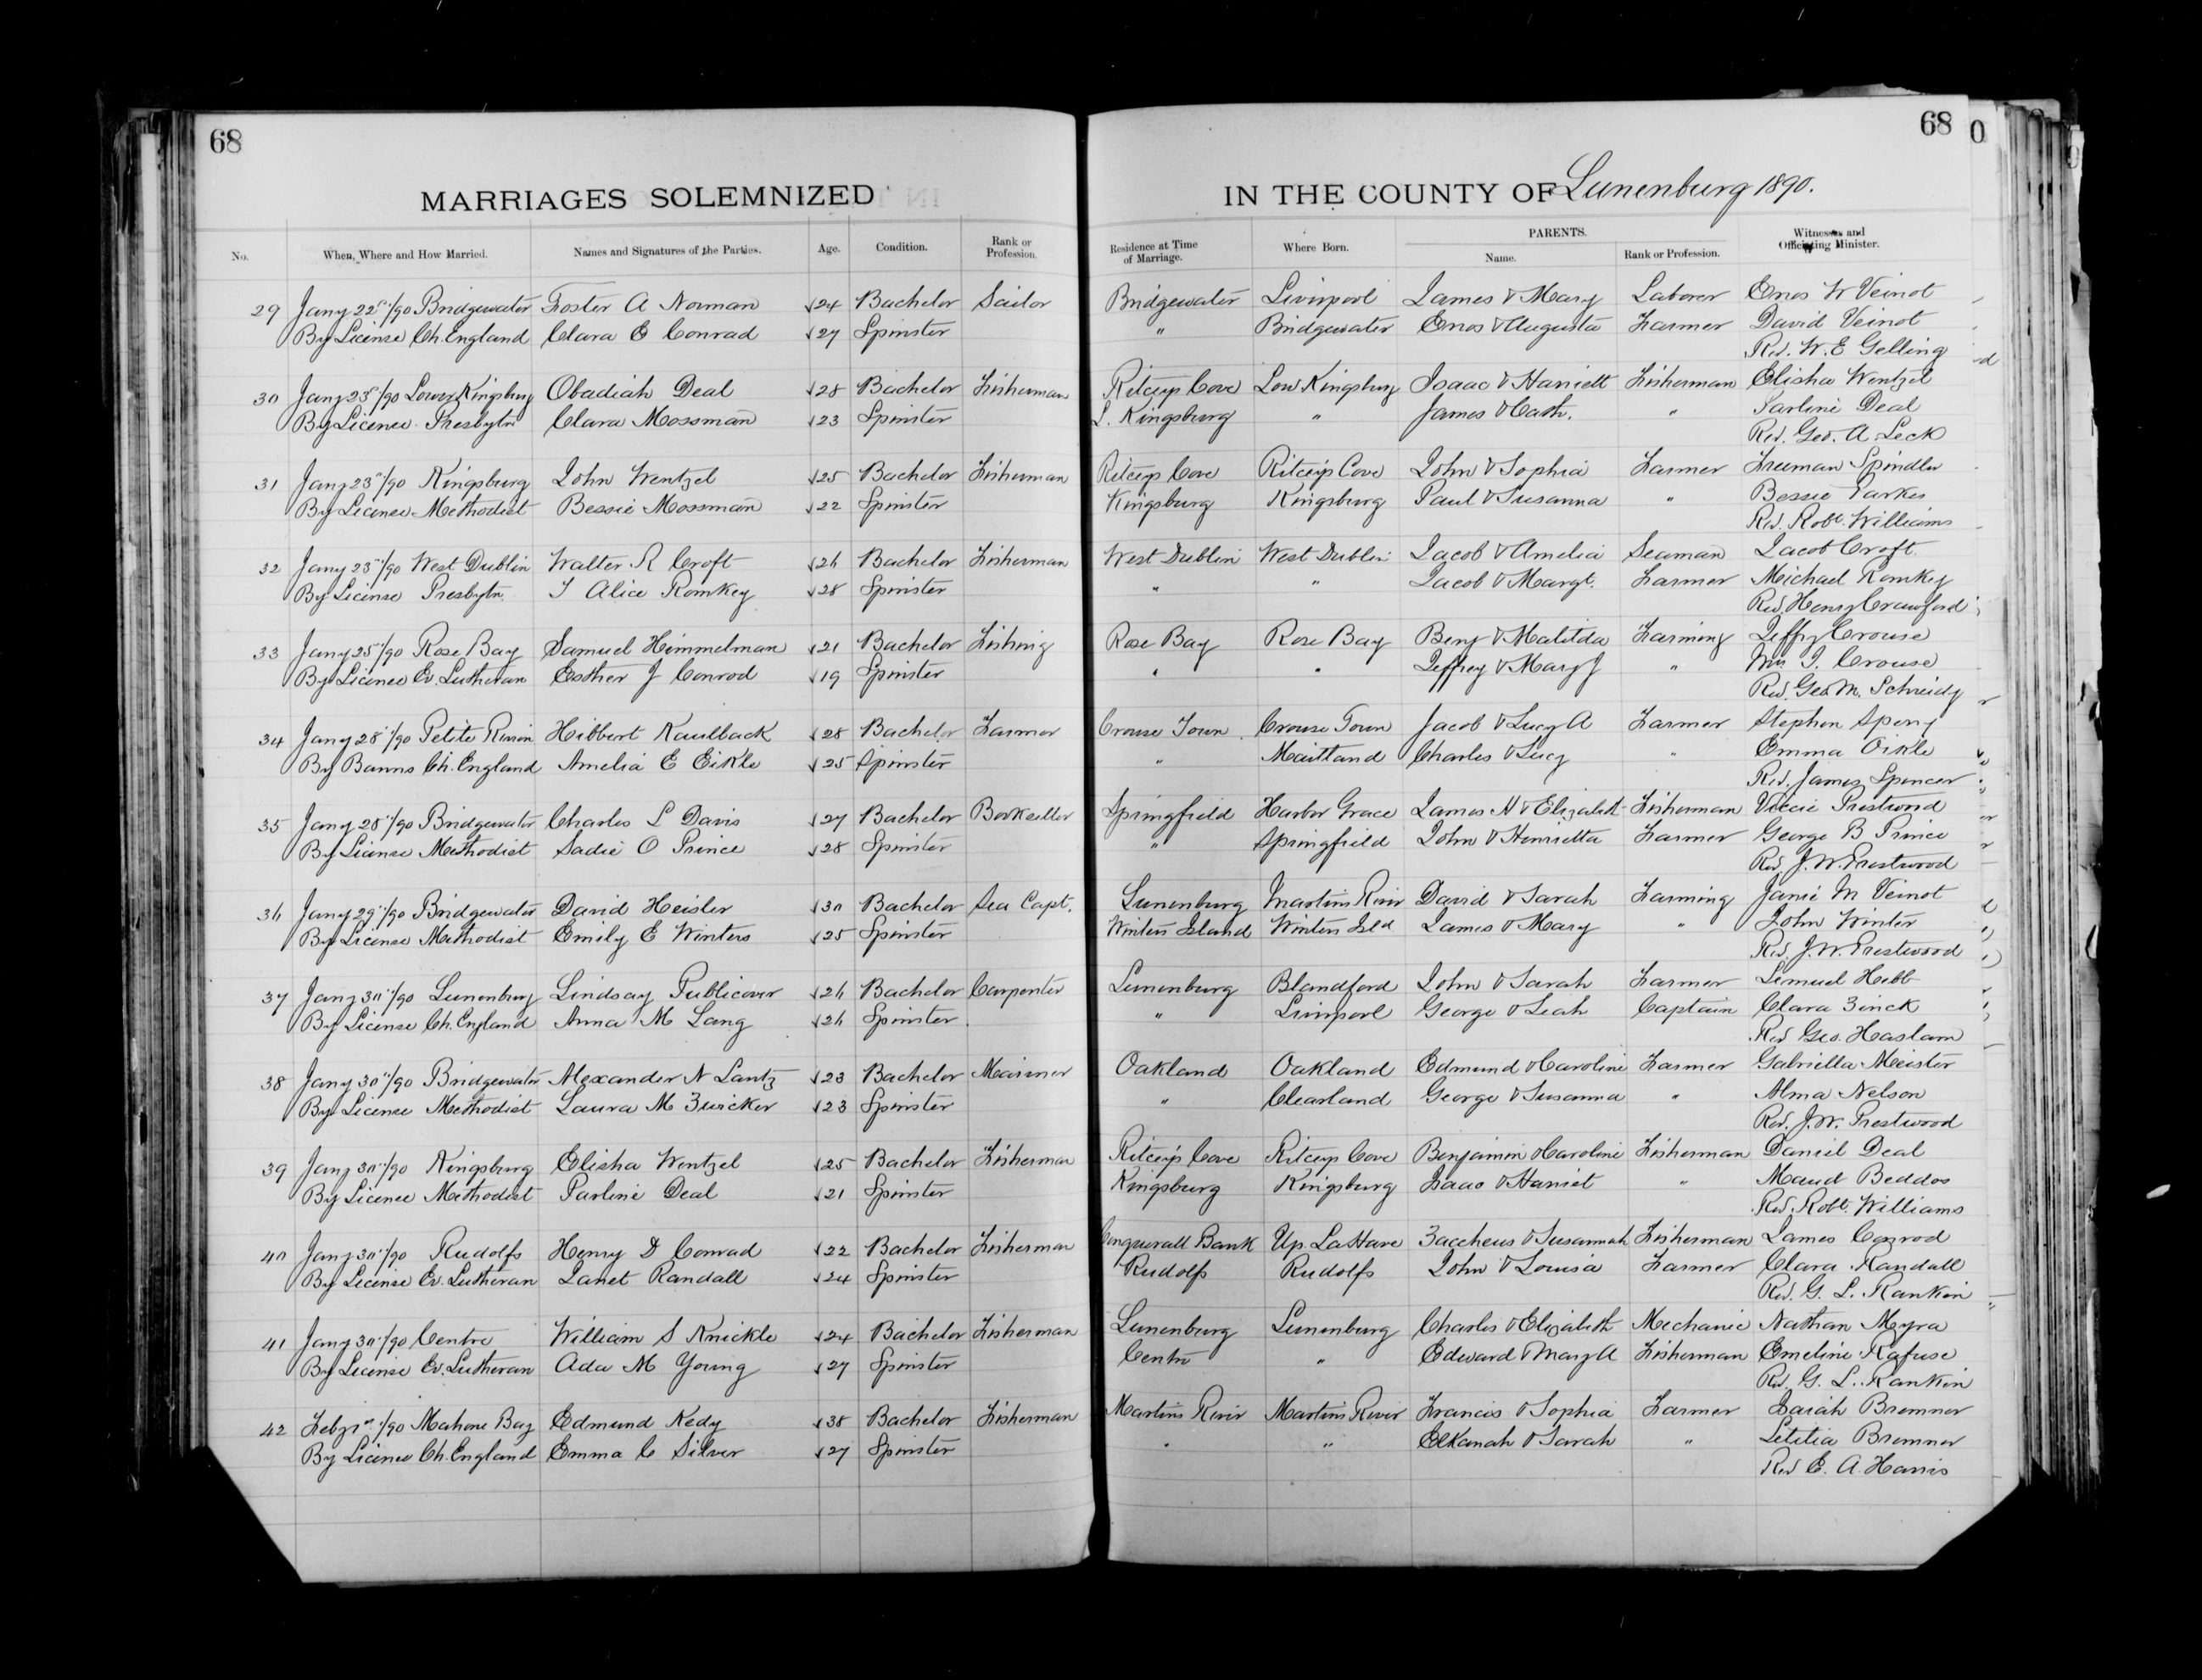 68
68
0
MARRIAGES SOLEMNIZED
IN THE COUNTY OF Lunenburg 1890.
No. When, Where and How Married. Names and Signatures of the Parties. Age. Condition. Rank or Profession. Residence at Time of Marriage. Where Born. PARENTS. Name. Rank or Profession. Witnesses and Officiating Minister.
29 Jany 22"/90 Bridgewater Foster A Norman 24 Bachelor Sailor Bridgewater Liverpool James & Mary Laborer Enos W Veinot
By License Ch. England Clara E Conrad 27 Spinster " Bridgewater Enos & Augusta Farmer David Veinot
Rev. W. E Gelling
30 Jany 23"/90 Lower Kingsburg Obadiah Deal 28 Bachelor Fisherman Ritceys Cove Low Kingsburg Isaac & Harriett Fisherman Elisha Wentzel
By Licence Presbytn Clara Mossman 23 Spinster L. Kingsburg " James & Cath. " Parline Deal
Rev. Geo. A Leck
31 Jany 23"/90 Kingsburg John Wentzel 25 Bachelor Fisherman Ritceys Cove Ritceys Cove John & Sophia Farmer Freeman Spindler
By Licence Methodist Bessie Mossman 22 Spinster Kingsburg Kingsburg Paul & Susanna " Bessie Parkes
Rev. Robt. Williams
32 Jany 23"/90 West Dublin Walter R Croft 26 Bachelor Fisherman West Dublin West Dublin Jacob & Amelia Seaman Jacob Croft
By License Presbytn. I Alice Romkey 28 Spinster " " Jacob & Margt. Farmer Michael Romkey
Rev. Henry Crawford
33 Jany 25"/90 Rose Bay Samuel Himmelman 21 Bachelor Fishing Rose Bay Rose Bay Benj & Matilda Farming Jeffry Crouse
By Licence Ev. Lutheran Esther J Conrod 19 Spinster " " Jeffrey & Mary J " Mrs J. Crouse
Rev. Geo M.
34 Jany 28"/90 Petite Rivier Hibbert Kaulback 28 Bachelor Farmer Crouse Town Crouse Town Jacob & Lucy A Farmer Stephen Spery
By Banns Ch. England Amelia E Eikle 25 Spinster " Maitland Charles & Lucy " Emma Oikle
Rev. James Spencer
35 Jany 28"/90 Bridgewater Charles L Davis 27 Bachelor Bookseller Springfield Harbor Grace James H & Elizabeth Fisherman Prestwood
By License Methodist Sadie O Prince 28 Spinster " Springfield John & Henrietta Farmer George B Prince
Rev J. W. Prestwood
36 Jany 29"/90 Bridgewater David Heisler 30 Bachelor Sea Capt. Lunenburg Martins River David & Sarah Farming Janie M Veinot
By License Methodist Emily E Winters 25 Spinster Winters Island Winters Isld James & Mary " John Winter
Rev. J. W. Prestwood
37 Jany 30"/90 Lunenburg Lindsay Publicover 26 Bachelor Carpenter Lunenburg Blandford John & Sarah Farmer Lemuel Hebb
By License Ch. England Anna M Lang 26 Spinster " Liverpool George & Leah Captain Clara Zinck
Rev Geo. Haslam
38 Jany 30"/90 Bridgewater Alexander N Lantz 23 Bachelor Mariner Oakland Oakland Edmund & Caroline Farmer Gabriella Meister
By License Methodist Laura M Zwicker 23 Spinster " Clearland George & Susanna " Alma Nelson
Rev. J. W. Prestwood
39 Jany 30"/90 Kingsburg Elisha Wentzel 25 Bachelor Fisherman Ritceys Cove Ritceys Cove Benjamin & Caroline Fisherman Daniel Deal
By Licence Methodist Parline Deal 21 Spinster Kingsburg Kingsburg Isaac & Harriet " Maud Beddos
Rev. Robt. Williams
40 Jany 30"/90 Rudolfs Henry D Conrad 22 Bachelor Fisherman Conquerall Bank Up LaHave Zaccheus & Susannah Fisherman James Conrod
By License Ev. Lutheran Janet Randall 24 Spinster Rudolfs Rudolfs John & Louisa Farmer Clara Randall
Rev. G. L. Rankin
41 Jany 30"/90 Centre William S Knickle 24 Bachelor Fisherman Lunenburg Lunenburg Charles & Elizabeth Mechanic Nathan Myra
By License Ev. Lutheran Ada M Young 27 Spinster Centre " Edward & Mary A Fisherman Emeline Rafuse
Rev. G. L. Rankin
42 Feby 1st/90 Mahone Bay Edmund Kedy 38 Bachelor Fisherman Martins River Martins River Francis & Sophia Farmer Isaiah Bremner
By Licence Ch. England Emma C Silver 27 Spinster " " Elkanah & Sarah " Letitia Bremner
Rev E. A. Harris